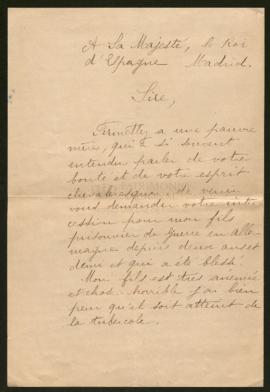 A Sa Majesté, le Roi
d'Espagne Madrid.
Sire,
Permettez a une pauvre
mère, qui a si souvent
entendu parler de votre
bonté et de votre esprit
chevaleresque, de venir
vous demander votre inter
cession pour mon fils
prisonnier de guerre en Alle
magne depuis deux ans et
demi et qui a été blessé.
Mon fils est très anémié
et chose horrible j'ai bien
peur qu'il soit atteint de
la tubercolo.